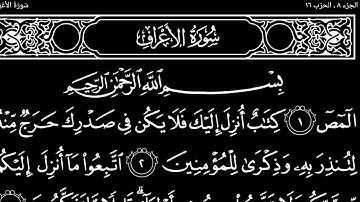 الجزء ٨ ، الحزب ١٦
سورة الأعر
سُورَةُ الأَعْرَافِ
بِسْمِ اللَّهِ الرَّحْمَٰنِ الرَّحِيمِ
الٓمٓصٓ ١ كِتَٰبٌ أُنزِلَ إِلَيْكَ فَلَا يَكُن فِى صَدْرِكَ حَرَجٌ مِّنْهُ
لِتُنذِرَ بِهِۦ وَذِكْرَىٰ لِلْمُؤْمِنِينَ ٢ ٱتَّبِعُوا۟ مَآ أُنزِلَ إِلَيْكُم